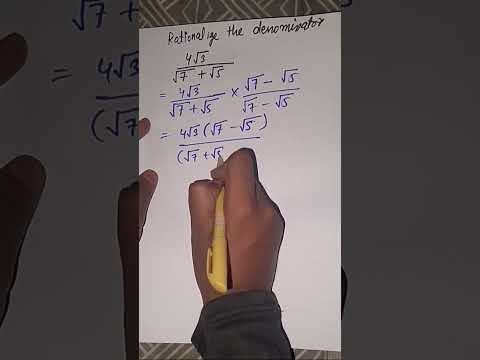 Rationalize the denominator
4√3
√7 + √5
= 4√3 / √7 + √5 × √7 - √5 / √7 - √5
= 4√3 (√7 - √5)
(√7 + √5